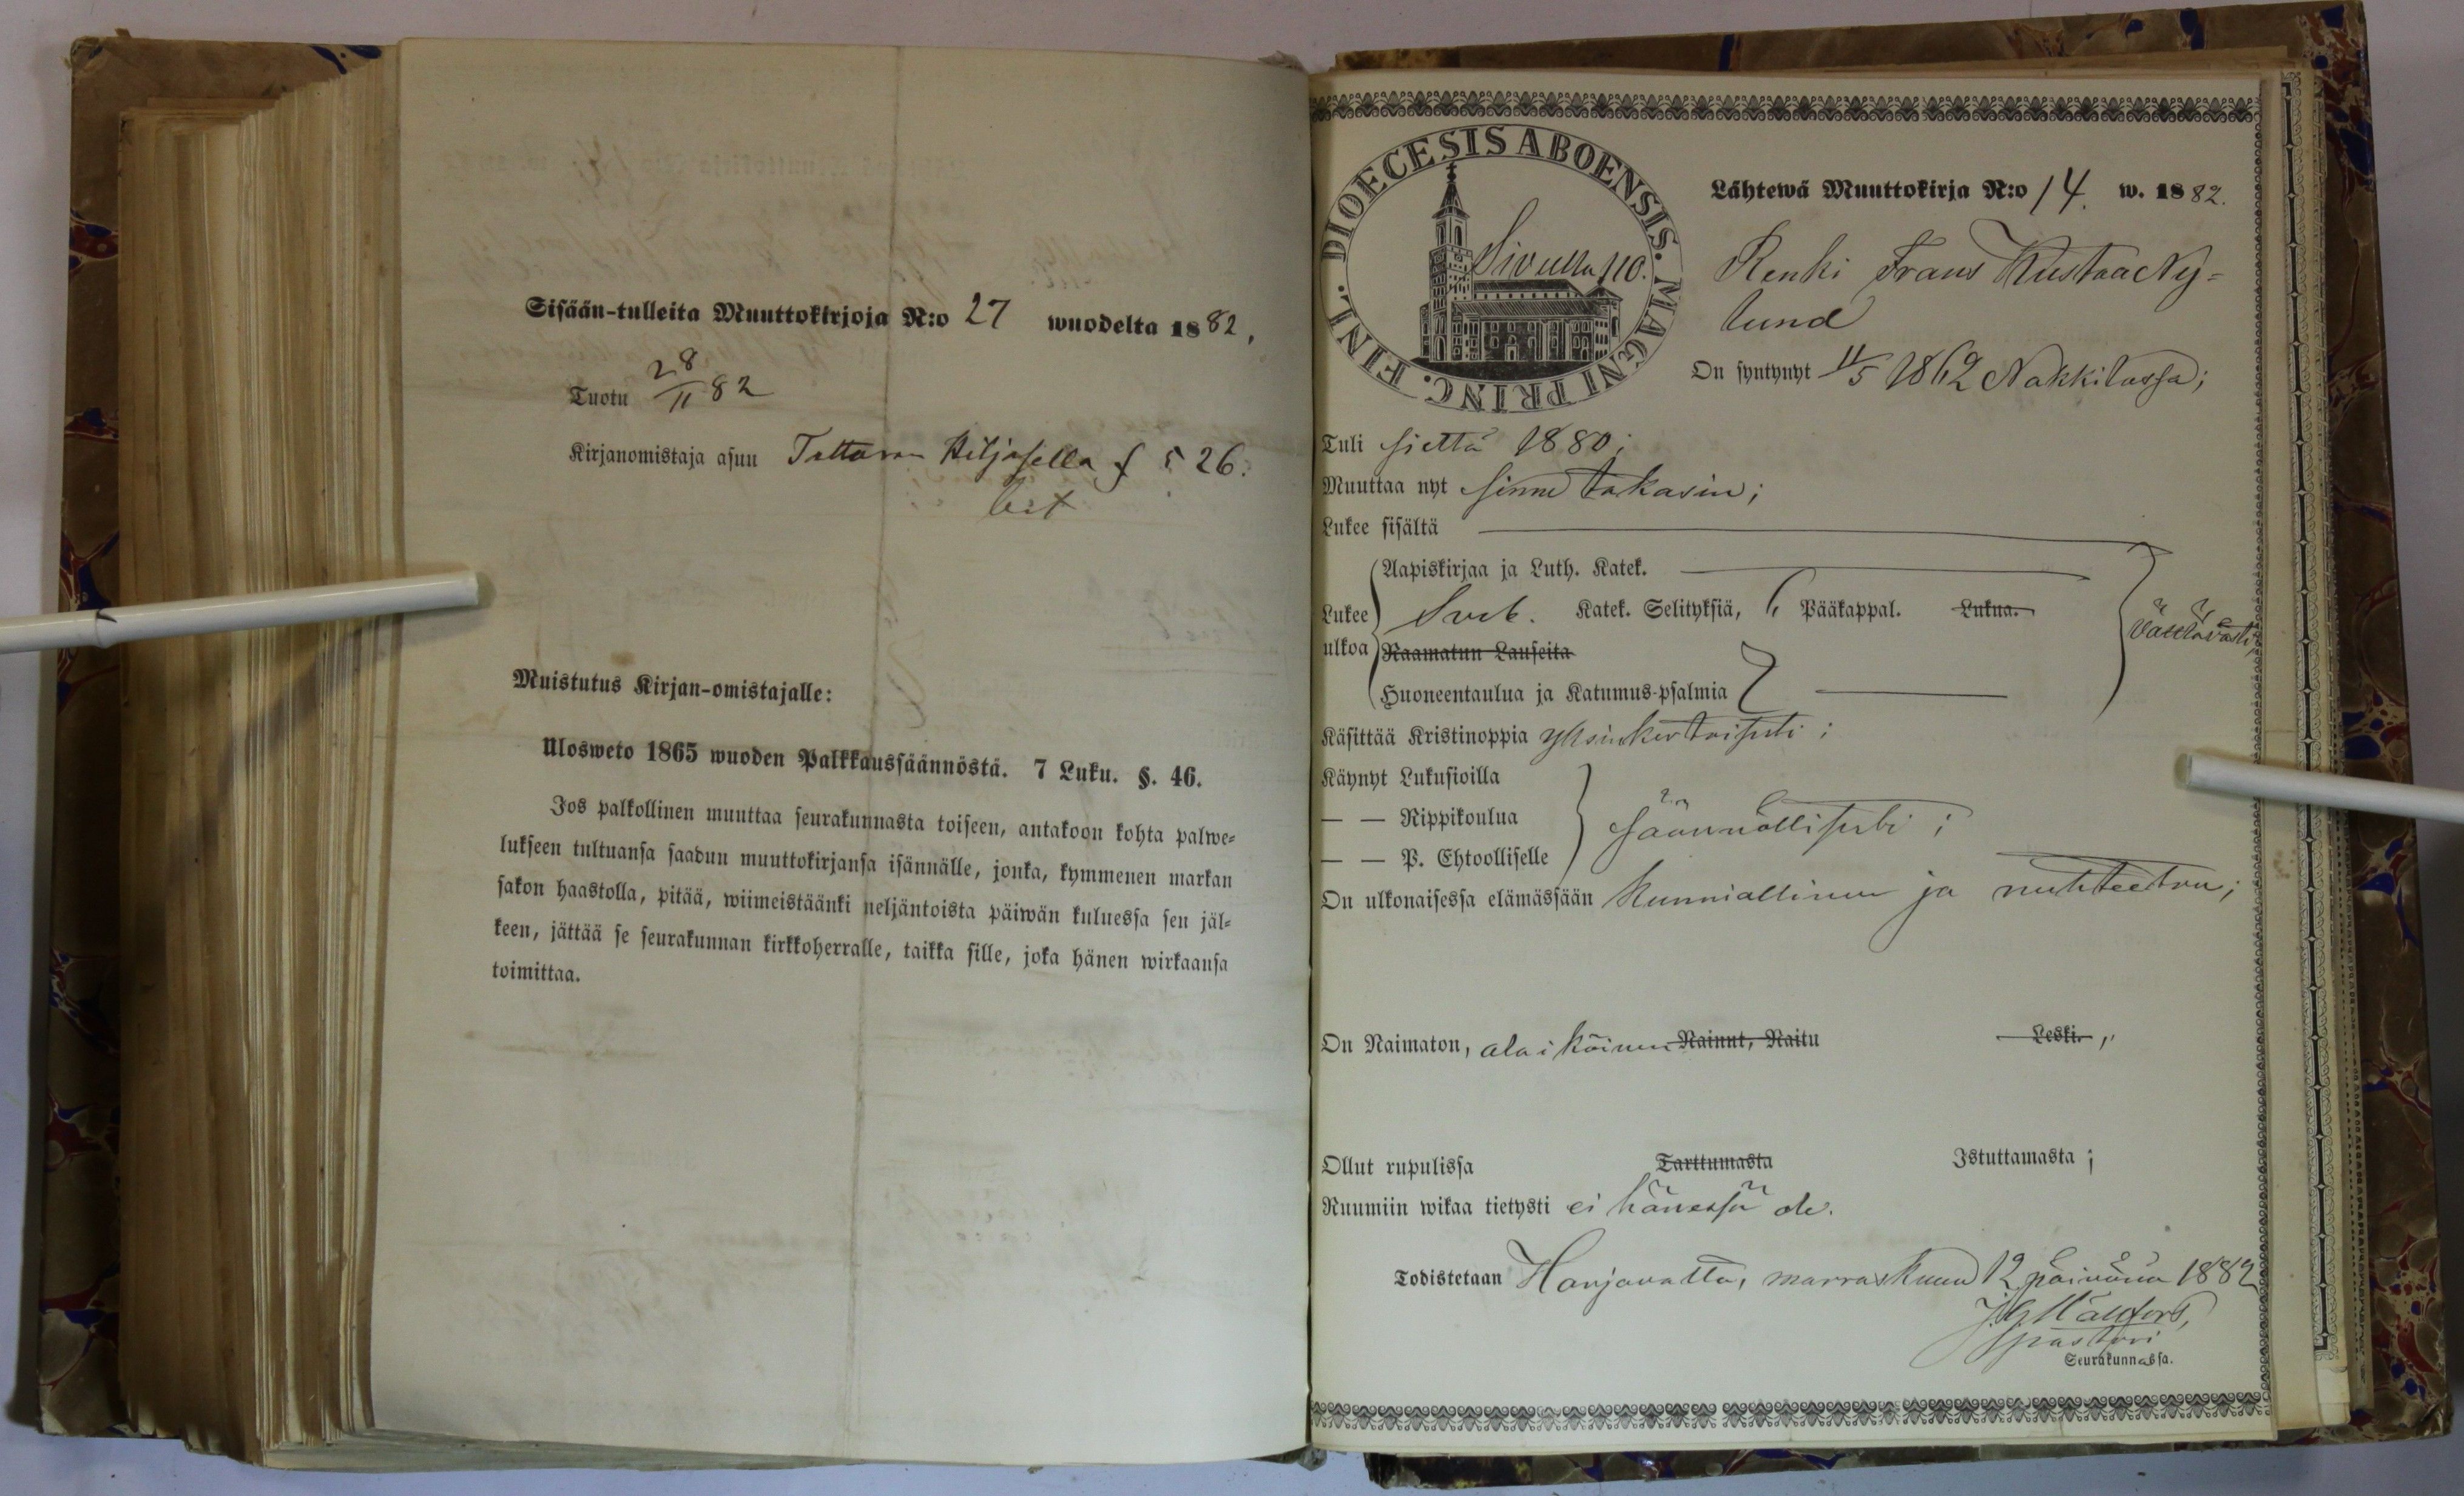 Sisään-tulleita Muuttokirjoja N:o 27 wuodelta 1882,
Tuotu 28/11 82
Kirjanomistaja asuu Tattaran Hiljasella f 526.
Muistutus Kirjan-omistajalle:
Ulosweto 1865 wuoden Palkkaussäännöstä. 7 Luku. §. 46.
Jos palkollinen muuttaa seurakunnasta toiseen, antakoon kohta palwe-
lukseen tultuansa saadun muuttokirjansa isännälle, jonka, kymmenen markan
sakon haastolla, pitää, wiimeistäänki neljäntoista päiwän kuluessa sen jäl-
keen, jättää se seurakunnan kirkkoherralle, taikka sille, joka hänen wirkaansa
toimittaa.
DIOECESIS ABOENSIS. MAGNI PRINC. FINL.
Sivulla 110.
Lähtewä Muuttokirja N:o 14. w. 1882.
Renki Frans Kustaa Ny-
lund
On syntynyt 11/5 1862 Nakkilassa;
Tuli sieltä 1880;
Muuttaa nyt sinne takasin;
Lukee sisältä
Aapiskirjaa ja Luth. Katek.
Lukee ulkoa Sveb. Katek. Selityksiä, 6 Pääkappal. Lukua.
Raamatun Lauseita
Huoneentaulua ja Katumus-psalmia 7
välttävästi;
Käsittää Kristinoppia yksinkertaisesti;
Käynyt Lukusioilla
— — Rippikoulua
säännöllisesti;
— — P. Ehtoolliselle
On ulkonaisessa elämässään kunniallinen ja nuhteeton;
On Naimaton, alaikäinen Nainut, Naitu Leski,
Ollut rupulissa Tarttumasta Istuttamasta;
Ruumiin wikaa tietysti ei hänessä ole.
Todistetaan Harjavalta, marraskuun 12 päivänä 1882
pastori
Seurakunnassa.